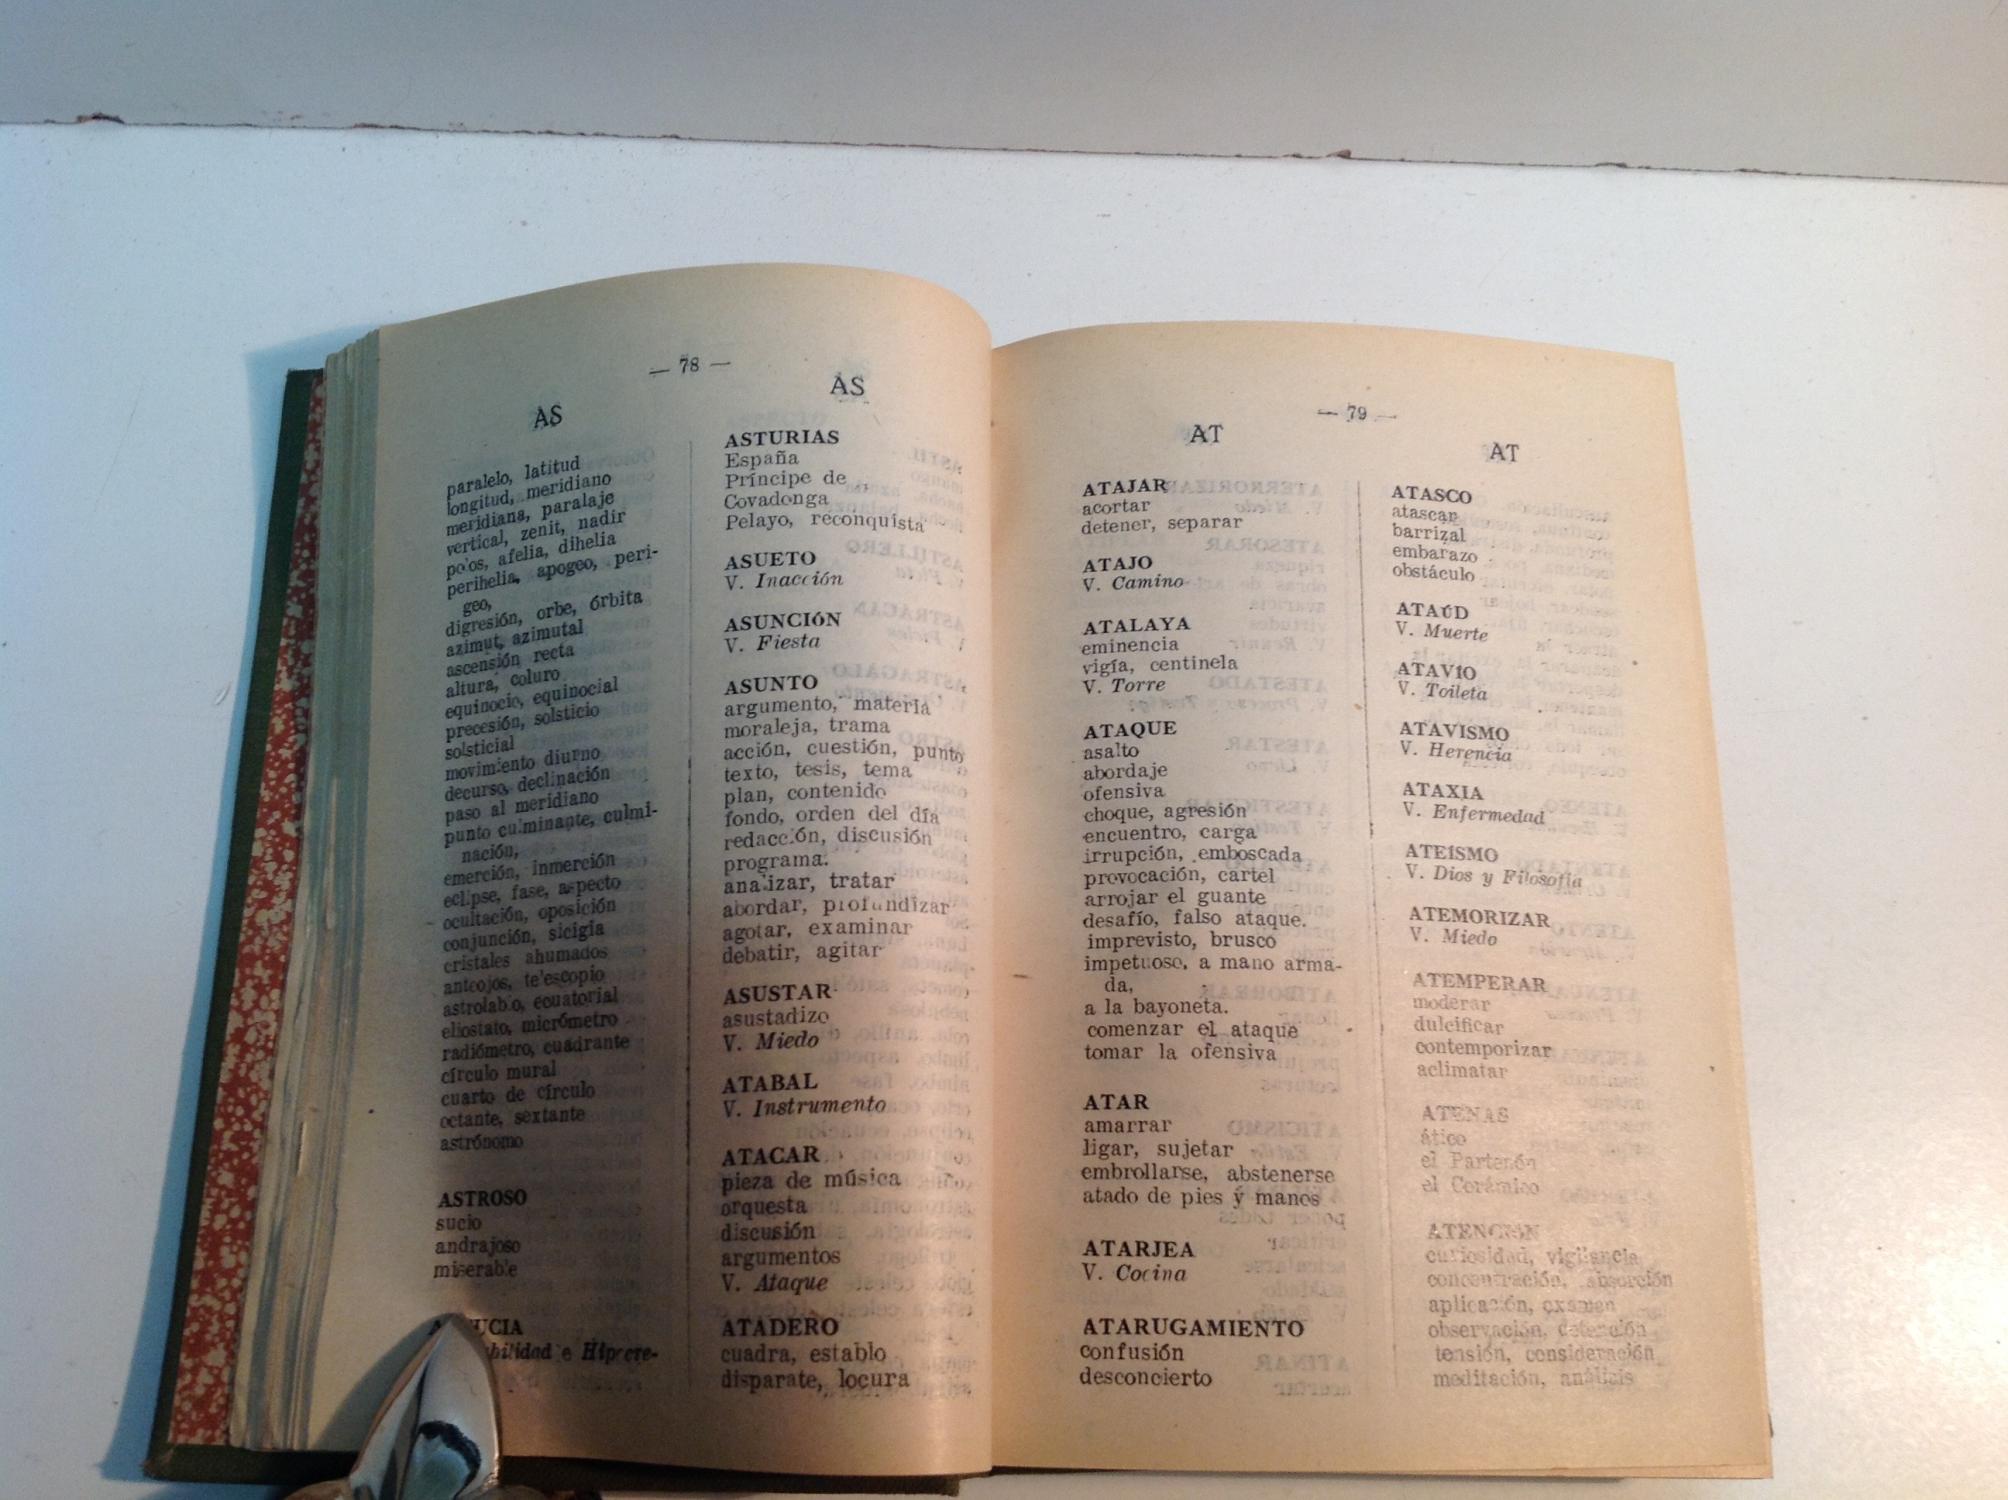 — 78 —
AS
paralelo, latitud
longitud, meridiano
meridiana, paralaje
vertical, zenit, nadir
polos, afelia, dihelia
perihelia, apogeo, peri-
geo,
digresión, orbe, órbita
azimut, azimutal
ascensión recta
altura, coluro
equinocio, equinocial
precesión, solsticio
solsticial
movimiento diurno
decurso, declinación
paso al meridiano
punto culminante, culmi-
nación,
emerción, inmerción
eclipse, fase, aspecto
ocultación, oposición
conjunción, sicigia
cristales ahumados
anteojos, te'escopio
astrolabio, ecuatorial
eliostato, micrómetro
radiómetro, cuadrante
círculo mural
cuarto de círculo
octante, sextante
astrónomo
ASTROSO
sucio
andrajoso
miserable
e Hipocre-
AS
ASTURIAS
España
Príncipe de
Covadonga
Pelayo, reconquista
ASUETO
V. Inacción
ASUNCIóN
V. Fiesta
ASUNTO
argumento, materia
moraleja, trama
acción, cuestión, punto
texto, tesis, tema
plan, contenido
fondo, orden del día
redacción, discusión
programa.
analizar, tratar
abordar, profundizar
agotar, examinar
debatir, agitar
ASUSTAR
asustadizo
V. Miedo
ATABAL
V. Instrumento
ATACAR
pieza de música
orquesta
discusión
argumentos
V. Ataque
ATADERO
cuadra, establo
disparate, locura
— 79 —
AT
ATAJAR
acortar
detener, separar
ATAJO
V. Camino
ATALAYA
eminencia
vigía, centinela
V. Torre
ATAQUE
asalto
abordaje
ofensiva
choque, agresión
encuentro, carga
irrupción, emboscada
provocación, cartel
arrojar el guante
desafío, falso ataque.
imprevisto, brusco
impetuoso, a mano arma-
da,
a la bayoneta.
comenzar el ataque
tomar la ofensiva
ATAR
amarrar
ligar, sujetar
embrollarse, abstenerse
atado de pies y manos
ATARJEA
V. Cocina
ATARUGAMIENTO
confusión
desconcierto
AT
ATASCO
atascar
barrizal
embarazo
obstáculo
ATAúD
V. Muerte
ATAVíO
V. Toileta
ATAVISMO
V. Herencia
ATAXIA
V. Enfermedad
ATEíSMO
V. Dios y Filosofía
ATEMORIZAR
V. Miedo
ATEMPERAR
moderar
dulcificar
contemporizar
aclimatar
ATENAS
ático
el Partenón
el Cerámico
ATENCIóN
curiosidad, vigilancia
concentración, absorción
aplicación, examen
observación, detención
tensión, consideración
meditación, análisis